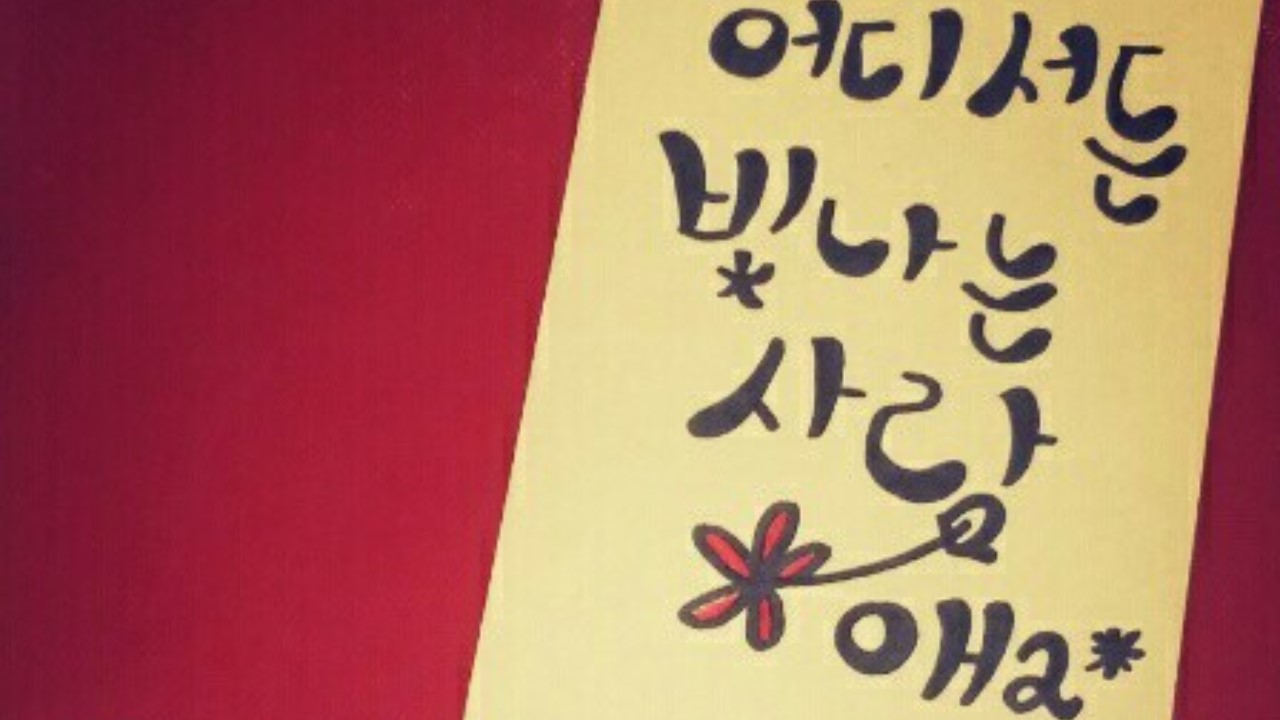 어디서든
빛나는
사람
애2*